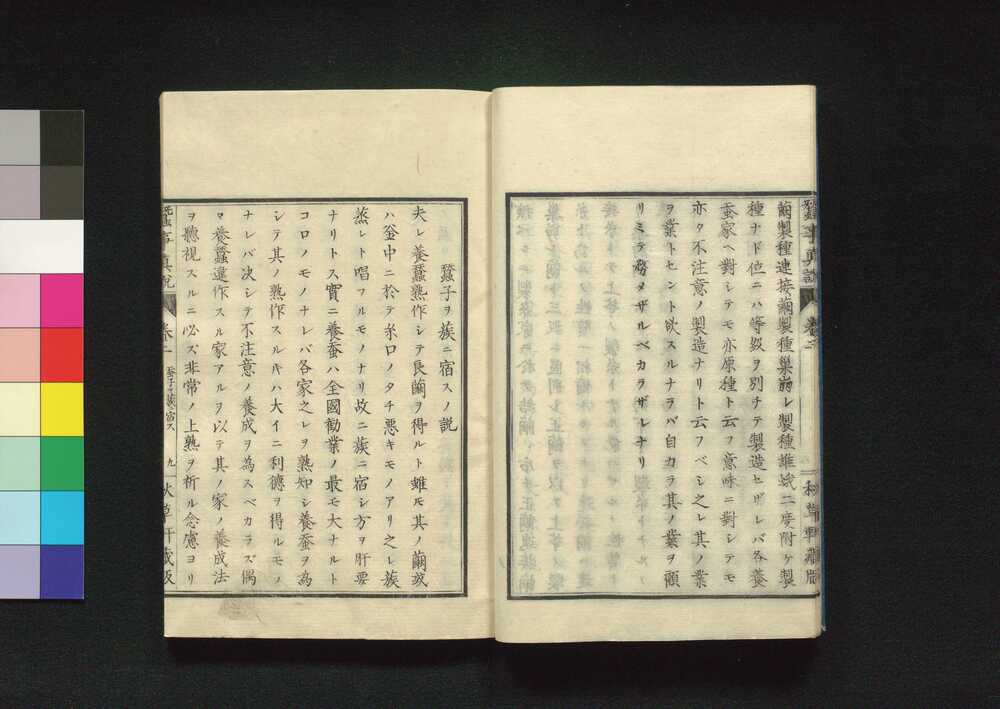 蠶事真説 卷之二 秋草軒蔵版
繭製種連接繭製種巣崩レ製種雄蛾二度附ケ製
種ナド位ニハ等級ヲ別チテ製造セザレバ各養
蚕家ヘ對シテモ亦原種ト云フ意味ニ對シテモ
亦タ不注意ノ製造ナリト云フベシ之レ其ノ業
ヲ業トセント欲スルナラバ自カラ其ノ業ヲ顧
リミテ務メザルベカラザレナリ
蠶子ヲ蔟ニ宿スノ説
夫レ養蠶熟作シテ良繭ヲ得ルト雖モ其ノ繭或
ハ釜中ニ於テ糸口ノタチ悪キモノアリ之レ蔟
蒸レト唱フルモノナリ故ニ蔟ニ宿シ方ヲ肝要
ナリトス實ニ養蚕ハ全國勧業ノ最モ大ナルト
コロノモノナレバ各家之レヲ熟知シ養蚕ヲ為
シテ其ノ熟作スルキハ大イニ利徳ヲ得ルモノ
ナレバ决シテ不注意ノ養成ヲ為スベカラズ偶
マ養蠶違作スル家アルヲ以テ其ノ家ノ養成法
ヲ聽視スルニ必ズ非常ノ上熟ヲ祈ル念慮ヨリ
蠶事真説 蚕子ヲ蔟ニ宿ス 九 秋草軒蔵版